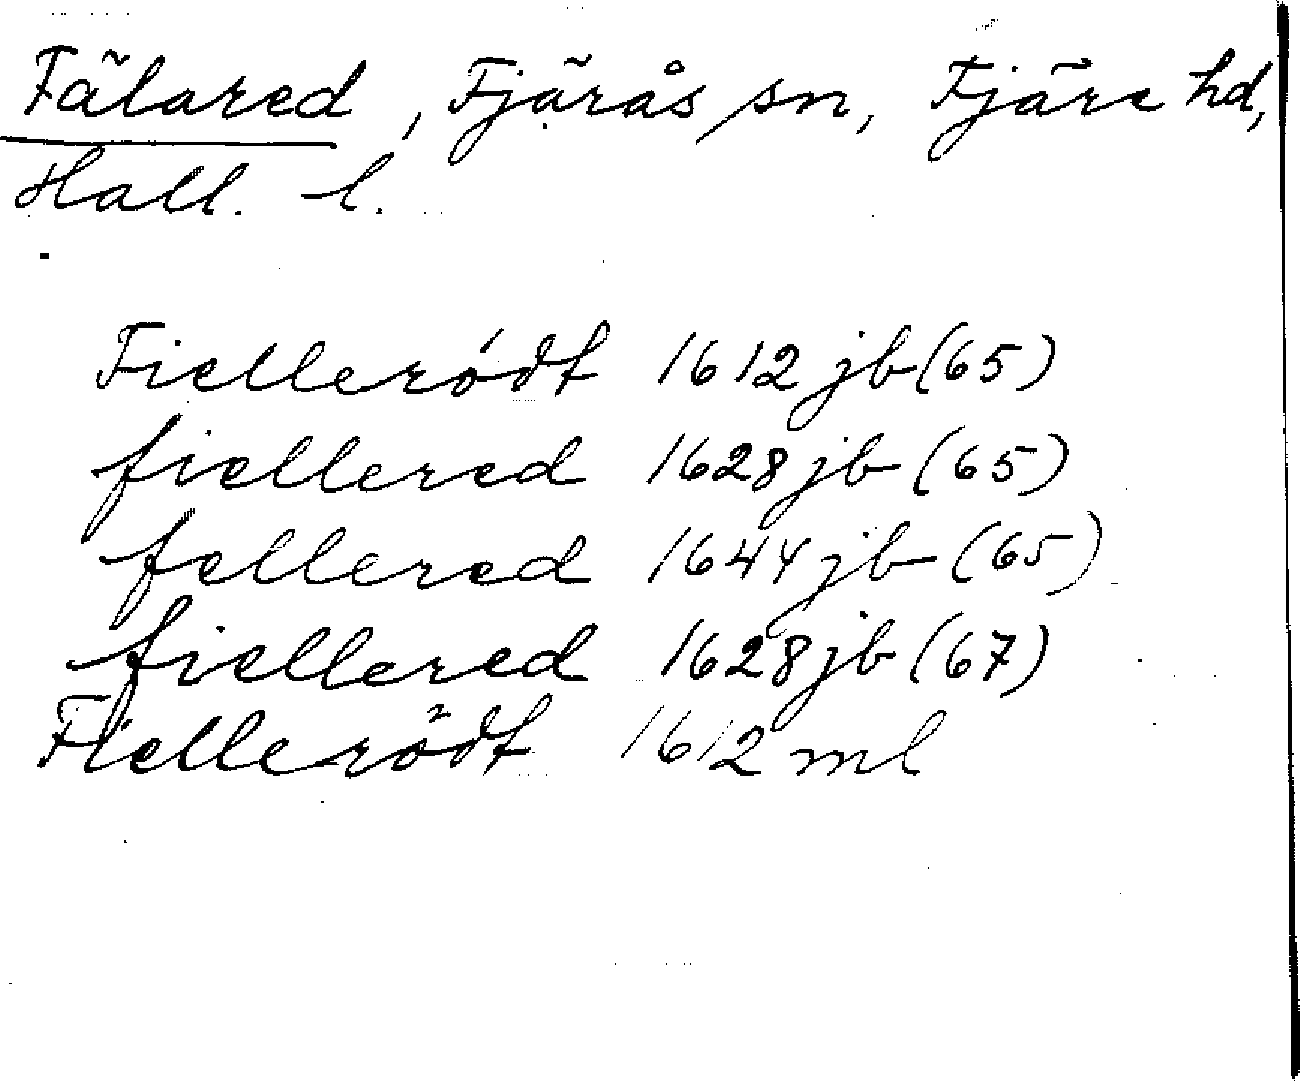 Fälared, Fjärås sn, Fjäre hd,
Hall. l.
Fielleródt 1612 jb (65)
fiellered 1628 jb (65)
fellered 1644 jb (65)
fiellered 1628 jb (67)
Fiellerödt 1612 ml